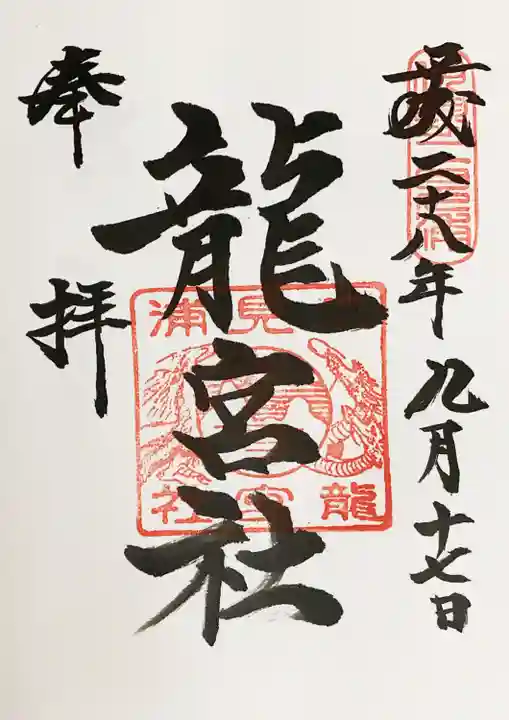 平成二十八年九月十七日
龍宮社
奉拝
見浦
龍宮社